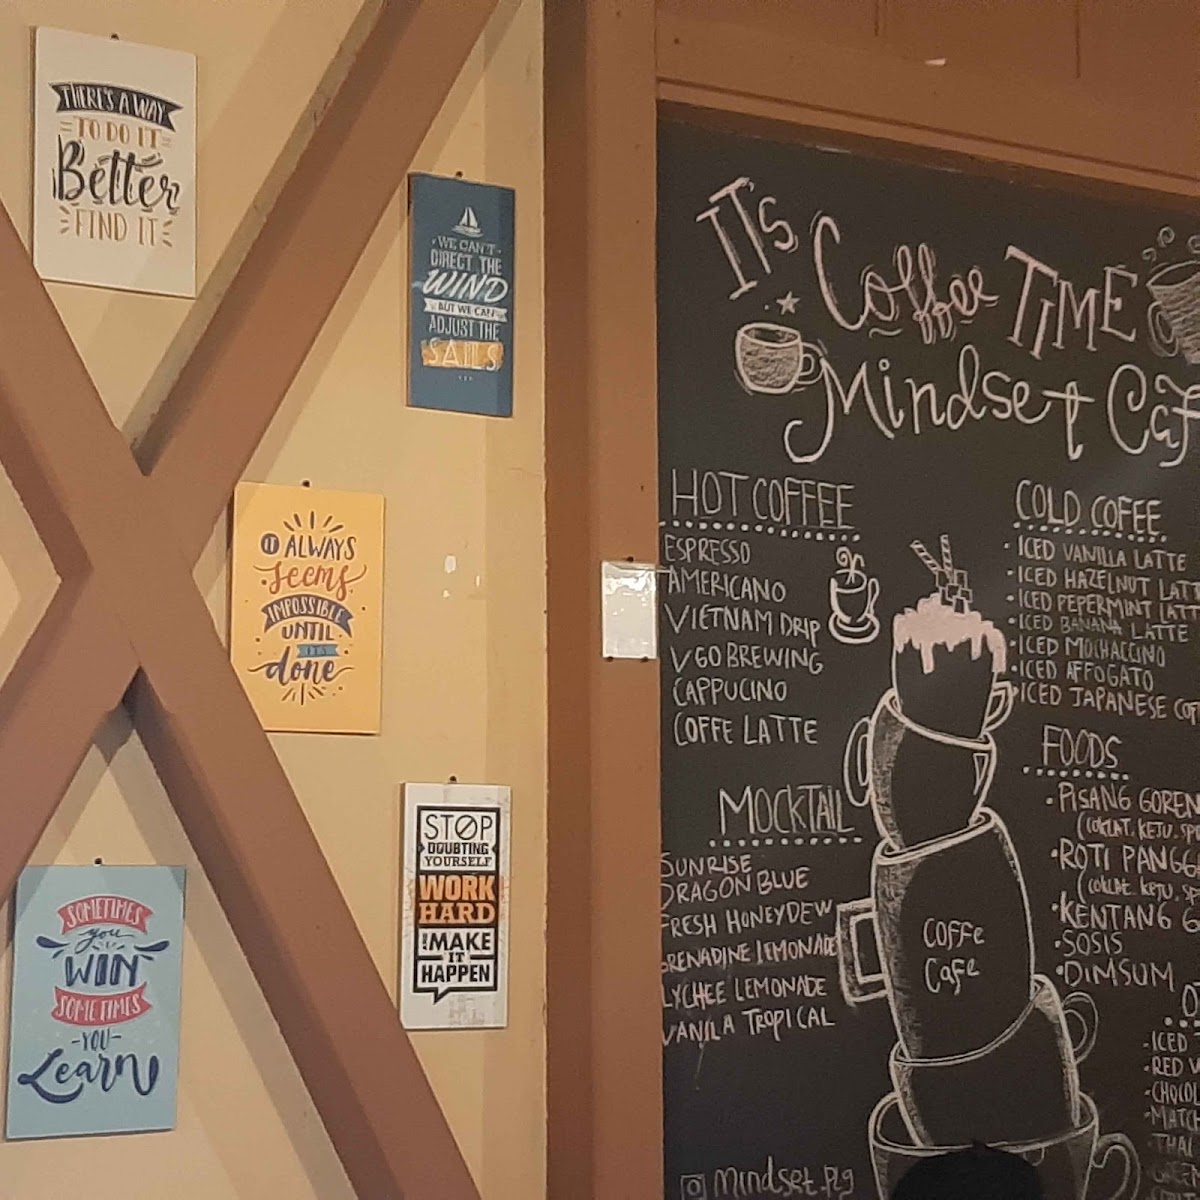 THERE'S A WAY
TO DO IT
Better
FIND IT
WE CAN'T
DIRECT THE
WIND
BUT WE CAN
ADJUST THE
SAILS
IT ALWAYS
seems
IMPOSSIBLE
UNTIL
IT'S
done
STOP
DOUBTING
YOURSELF
WORK
HARD
!MAKE
IT
HAPPEN
SOMETIMES
you
WIN
SOMETIMES
-YOU-
Learn
IT'S Coffee TIME
Mindset CaF
HOT COFFEE
ESPRESSO
AMERICANO
VIETNAM DRIP
V60 BREWING
CAPPUCINO
COFFE LATTE
MOCKTAIL
SUNRISE
DRAGON BLUE
FRESH HONEYDEW
GRENADINE LEMONADE
LYCHEE LEMONADE
VANILA TROPICAL
COLD COFEE
• ICED VANILLA LATTE
• ICED HAZELNUT LATT
• ICED PEPERMINT LATT
• ICED BANANA LATTE
• ICED MOCHACCINO
• ICED AFFOGATO
• ICED JAPANESE COF
FOODS
• PISANG GOREN
(COKLAT. KEJU. SP
• ROTI PANGG
(COKLAT. KEJU. S
• KENTANG G
• SOSIS
• DIMSUM
- ICED
- RED V
- CHOCOL
- MATCH
- THAI
COFFE
CaFe
mindset.plg